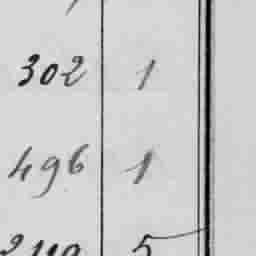 302 1
496 1
5